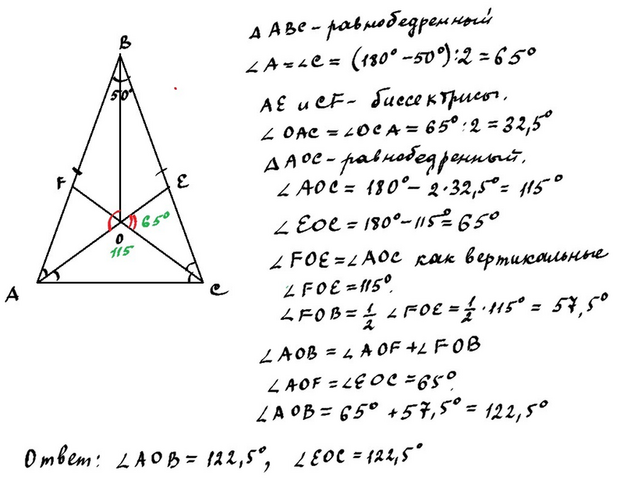 ∆ ABC - равнобедренный
∠A=∠C = (180° - 50°):2 = 65°
AE и CF - биссектрисы.
∠OAC = ∠OCA = 65°:2 = 32,5°
∆AOC - равнобедренный.
∠AOC = 180° - 2·32,5° = 115°
∠EOC = 180° - 115° = 65°
∠FOE = ∠AOC как вертикальные
∠FOE = 115°.
∠FOB = 1/2 ∠FOE = 1/2 · 115° = 57,5°
∠AOB = ∠AOF + ∠FOB
∠AOF = ∠EOC = 65°.
∠AOB = 65° + 57,5° = 122,5°
B
50°
F
E
65°
O
115
A
C
Ответ: ∠AOB = 122,5°, ∠EOC = 122,5°